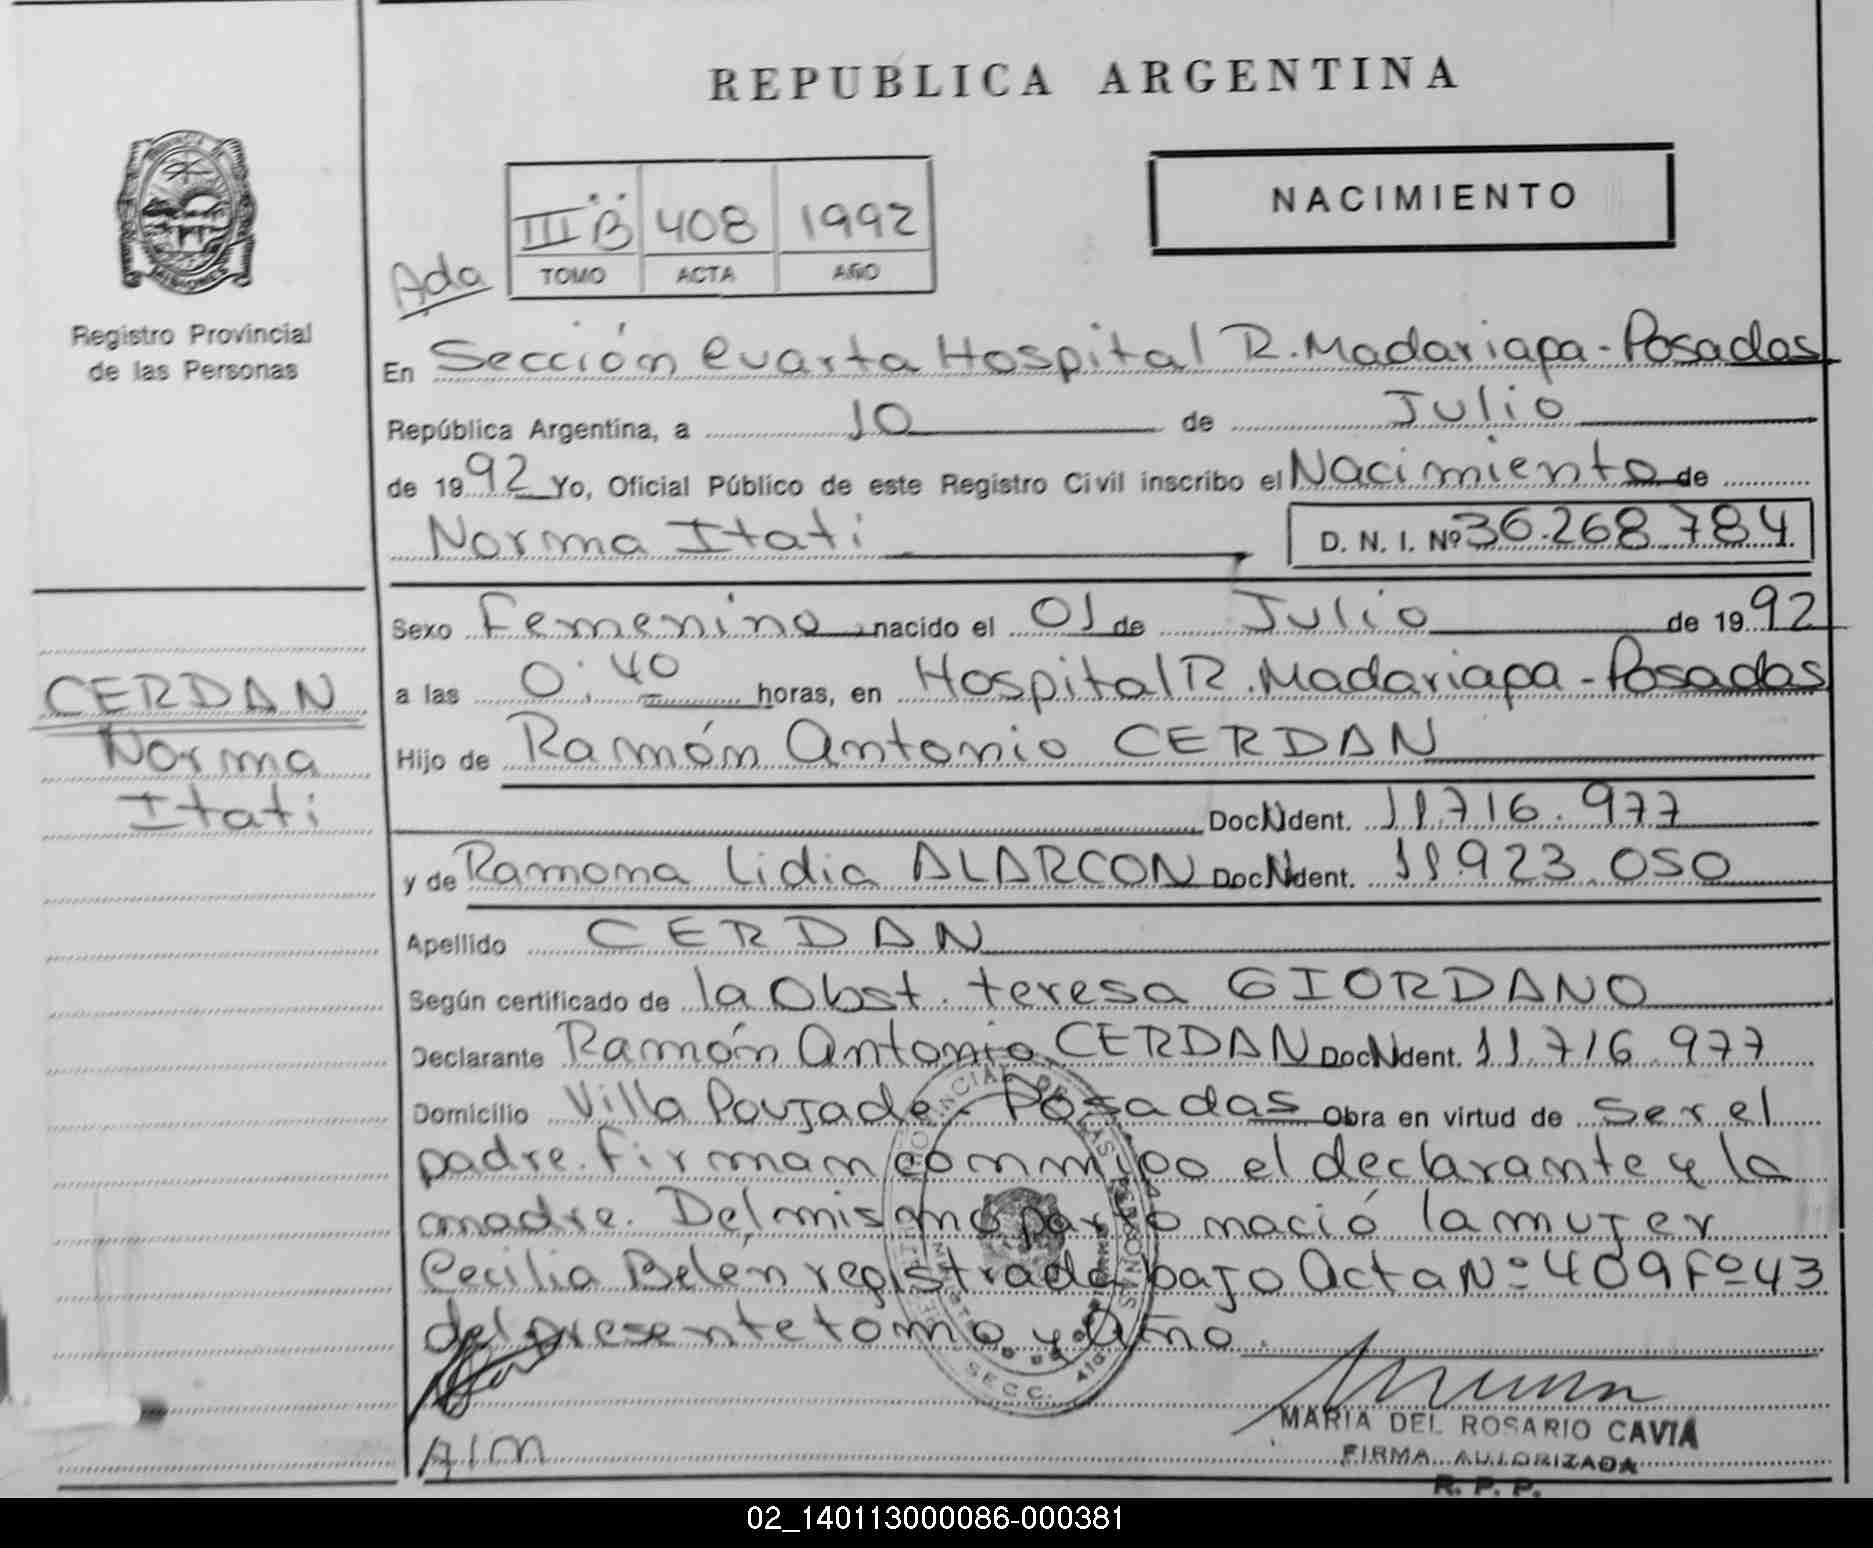 REPUBLICA ARGENTINA
NACIMIENTO
III B 408 1992
TOMO ACTA AÑO
Ada
Registro Provincial
de las Personas
MISIONES
En Sección Cuarta Hospital R. Madariaga - Posadas
República Argentina, a 10 de Julio
de 1992 Yo, Oficial Público de este Registro Civil inscribo el Nacimiento de
Norma Itati D. N. I. Nº 36.268.784
Sexo Femenino nacido el 01 de Julio de 1992
CERDAN
Norma
Itati
a las 0:40 horas, en Hospital R. Madariaga - Posadas
Hijo de Ramón Antonio CERDAN
Doc. Ident. 11.716.977
y de Ramona Lidia ALARCON Doc. Ident. 11.923.050
Apellido CERDAN
Según certificado de la Obst. teresa GIORDANO
Declarante Ramón Antonio CERDAN Doc. Ident. 11.716.977
Domicilio Villa Poujade - Posadas Obra en virtud de Ser el
padre. Firman conmigo el declarante y la
madre. Del mismo parto nació la mujer
Cecilia Belén registrada bajo Acta Nº 409 Fº 43
del presente tomo y año.
SECC. 4ta
MARIA DEL ROSARIO CAVIA
FIRMA AUTORIZADA
R. P. P.
02_140113000086-000381